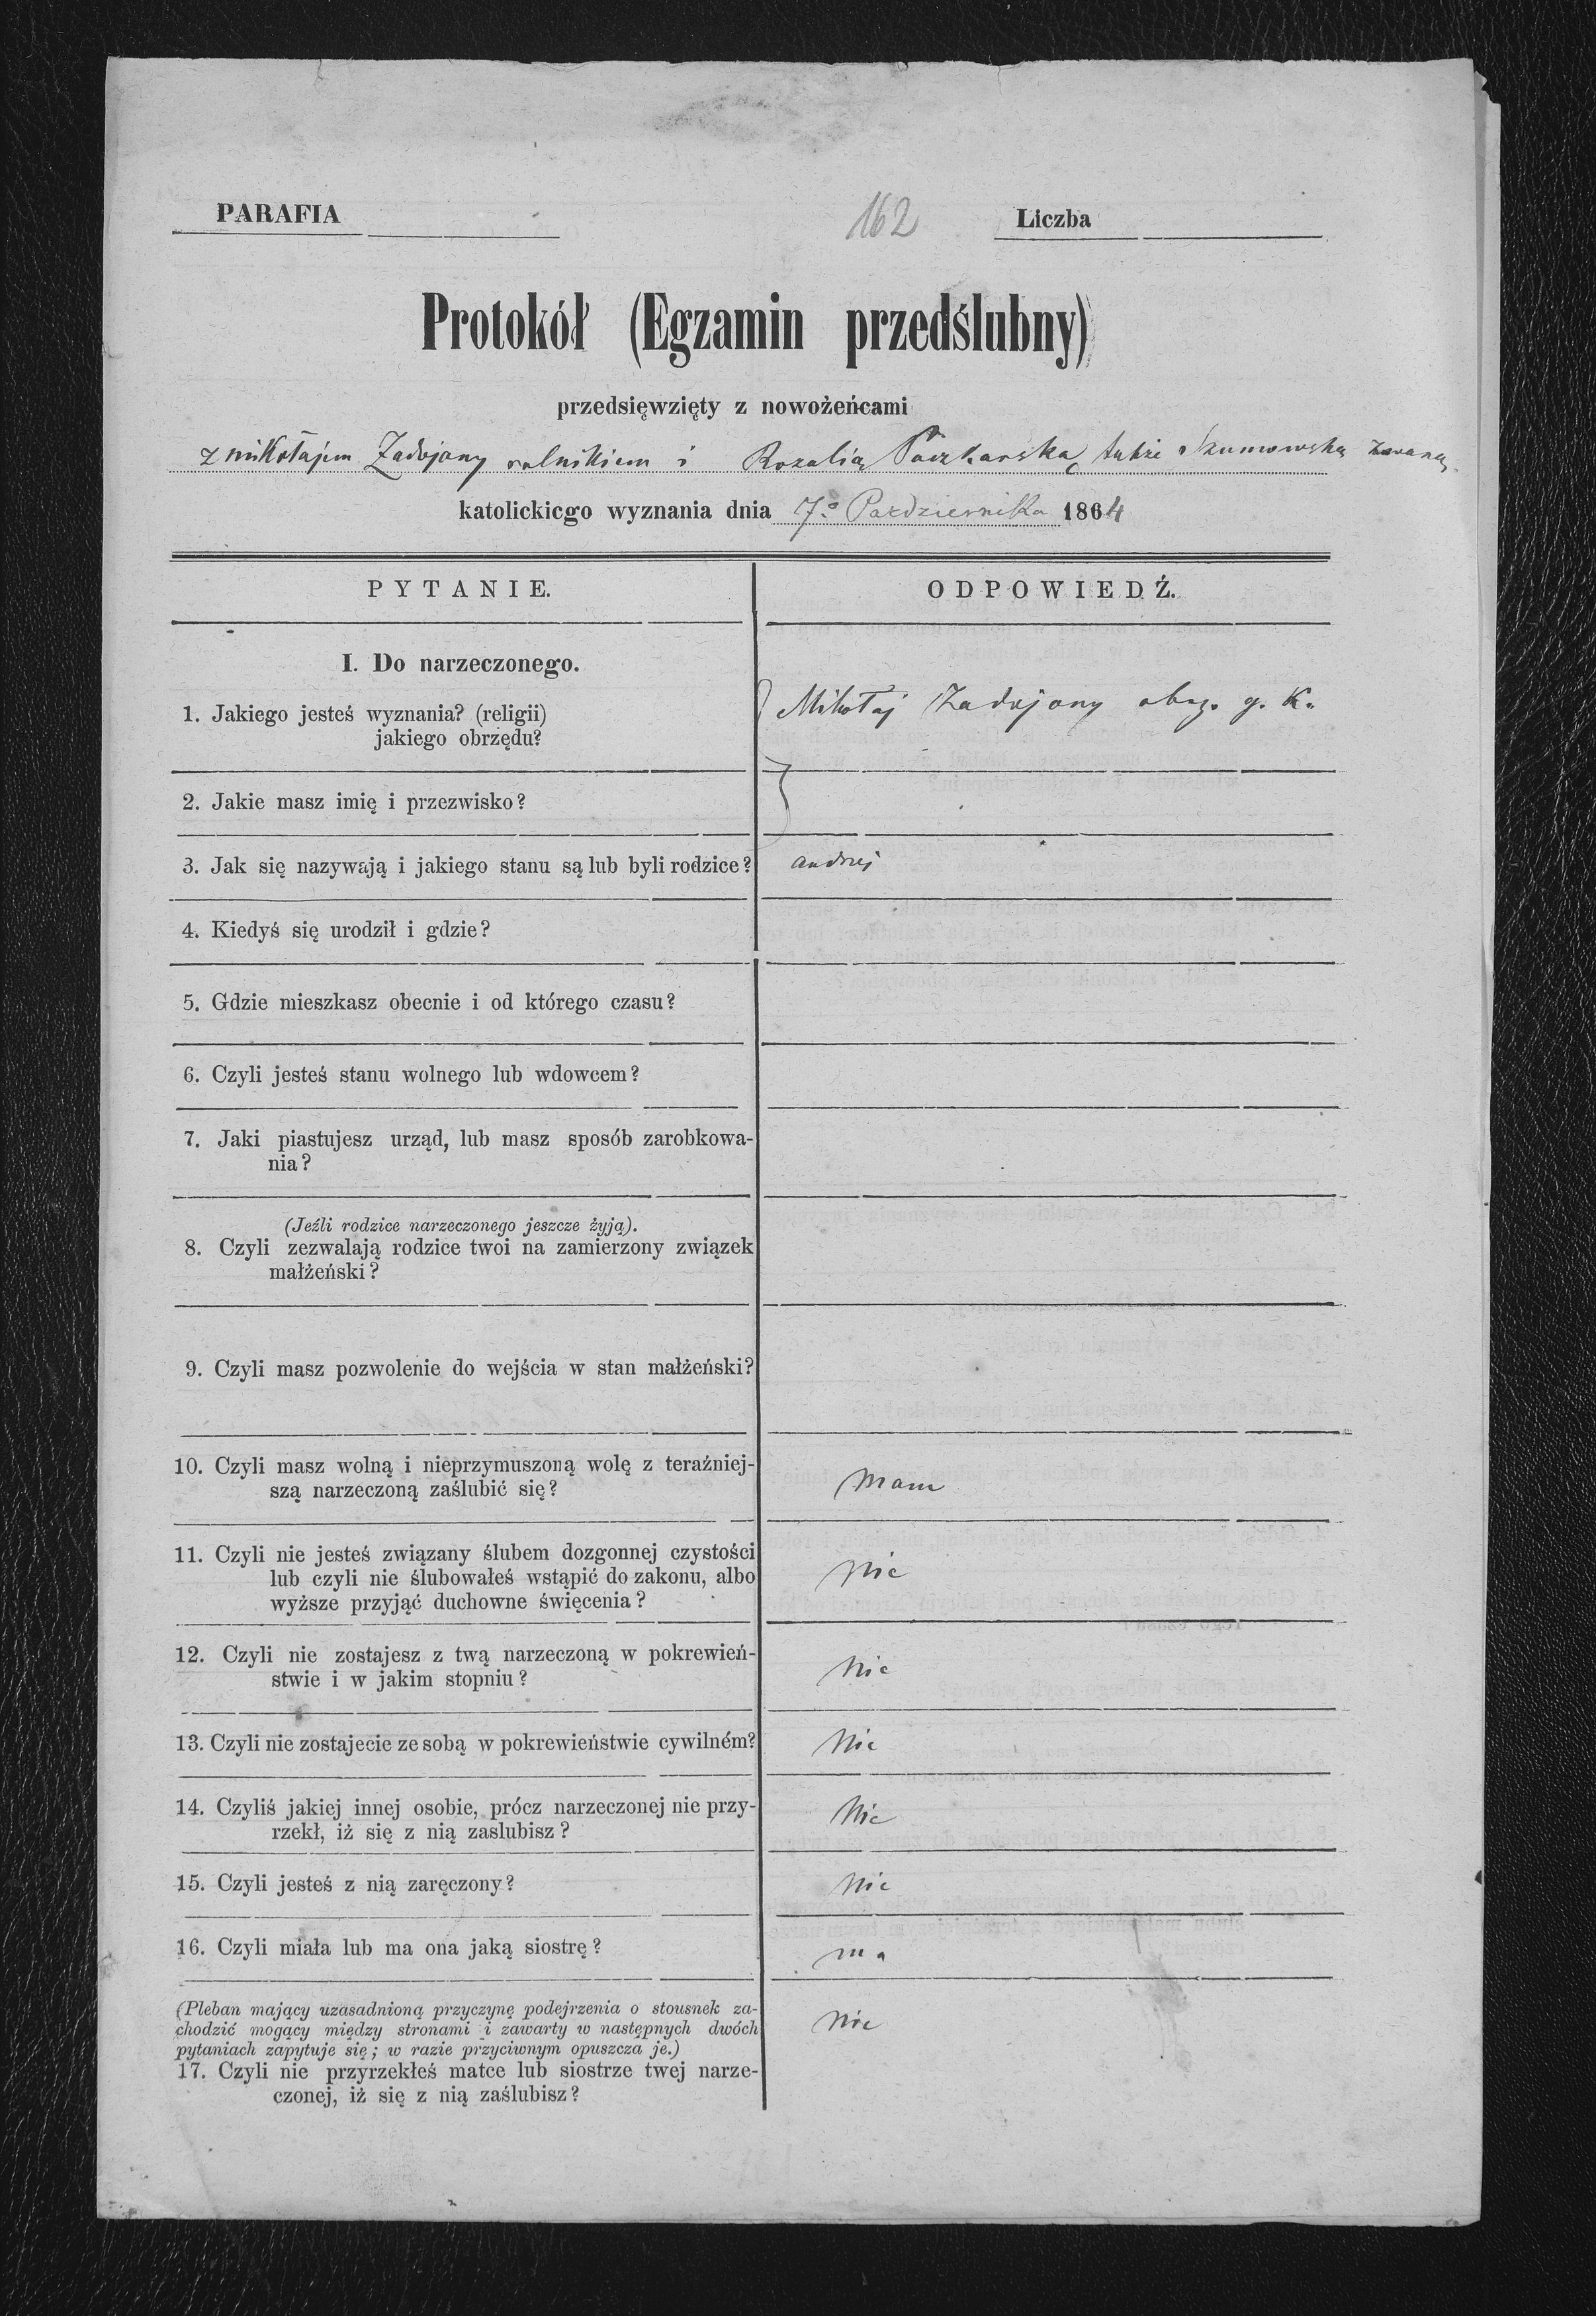 PARAFIA
162
Liczba
Protokół (Egzamin przedślubny)
przedsięwzięty z nowożeńcami
z mikołajem Zadojany rolnikiem i Rozalią Paczkarską także Szumowską zwaną
katolickiego wyznania dnia 7º Pazdziernika 1864
PYTANIE.
ODPOWIEDŹ.
I. Do narzeczonego.
1. Jakiego jesteś wyznania? (religii)
jakiego obrzędu?
Mikołaj Zadojany obrz. g. K.
2. Jakie masz imię i przezwisko?
3. Jak się nazywają i jakiego stanu są lub byli rodzice?
andrzej
4. Kiedyś się urodził i gdzie?
5. Gdzie mieszkasz obecnie i od którego czasu?
6. Czyli jesteś stanu wolnego lub wdowcem?
7. Jaki piastujesz urząd, lub masz sposób zarobkowa-
nia?
(Jeźli rodzice narzeczonego jeszcze żyją).
8. Czyli zezwalają rodzice twoi na zamierzony związek
małżeński?
9. Czyli masz pozwolenie do wejścia w stan małżeński?
10. Czyli masz wolną i nieprzymuszoną wolę z teraźniej-
szą narzeczoną zaślubić się?
mam
11. Czyli nie jesteś związany ślubem dozgonnej czystości
lub czyli nie ślubowałeś wstąpić do zakonu, albo
wyższe przyjąć duchowne święcenia?
nie
12. Czyli nie zostajesz z twą narzeczoną w pokrewień-
stwie i w jakim stopniu?
nie
13. Czyli nie zostajecie ze sobą w pokrewieństwie cywilném?
nie
14. Czyliś jakiej innej osobie, prócz narzeczonej nie przy-
rzekł, iż się z nią zaslubisz?
nie
15. Czyli jesteś z nią zaręczony?
nie
16. Czyli miała lub ma ona jaką siostrę?
ma
(Pleban mający uzasadnioną przyczynę podejrzenia o stousnek za-
chodzić mogący między stronami i zawarty w następnych dwóch
pytaniach zapytuje się; w razie przyciwnym opuszcza je.)
17. Czyli nie przyrzekłeś matce lub siostrze twej narze-
czonej, iż się z nią zaślubisz?
nie